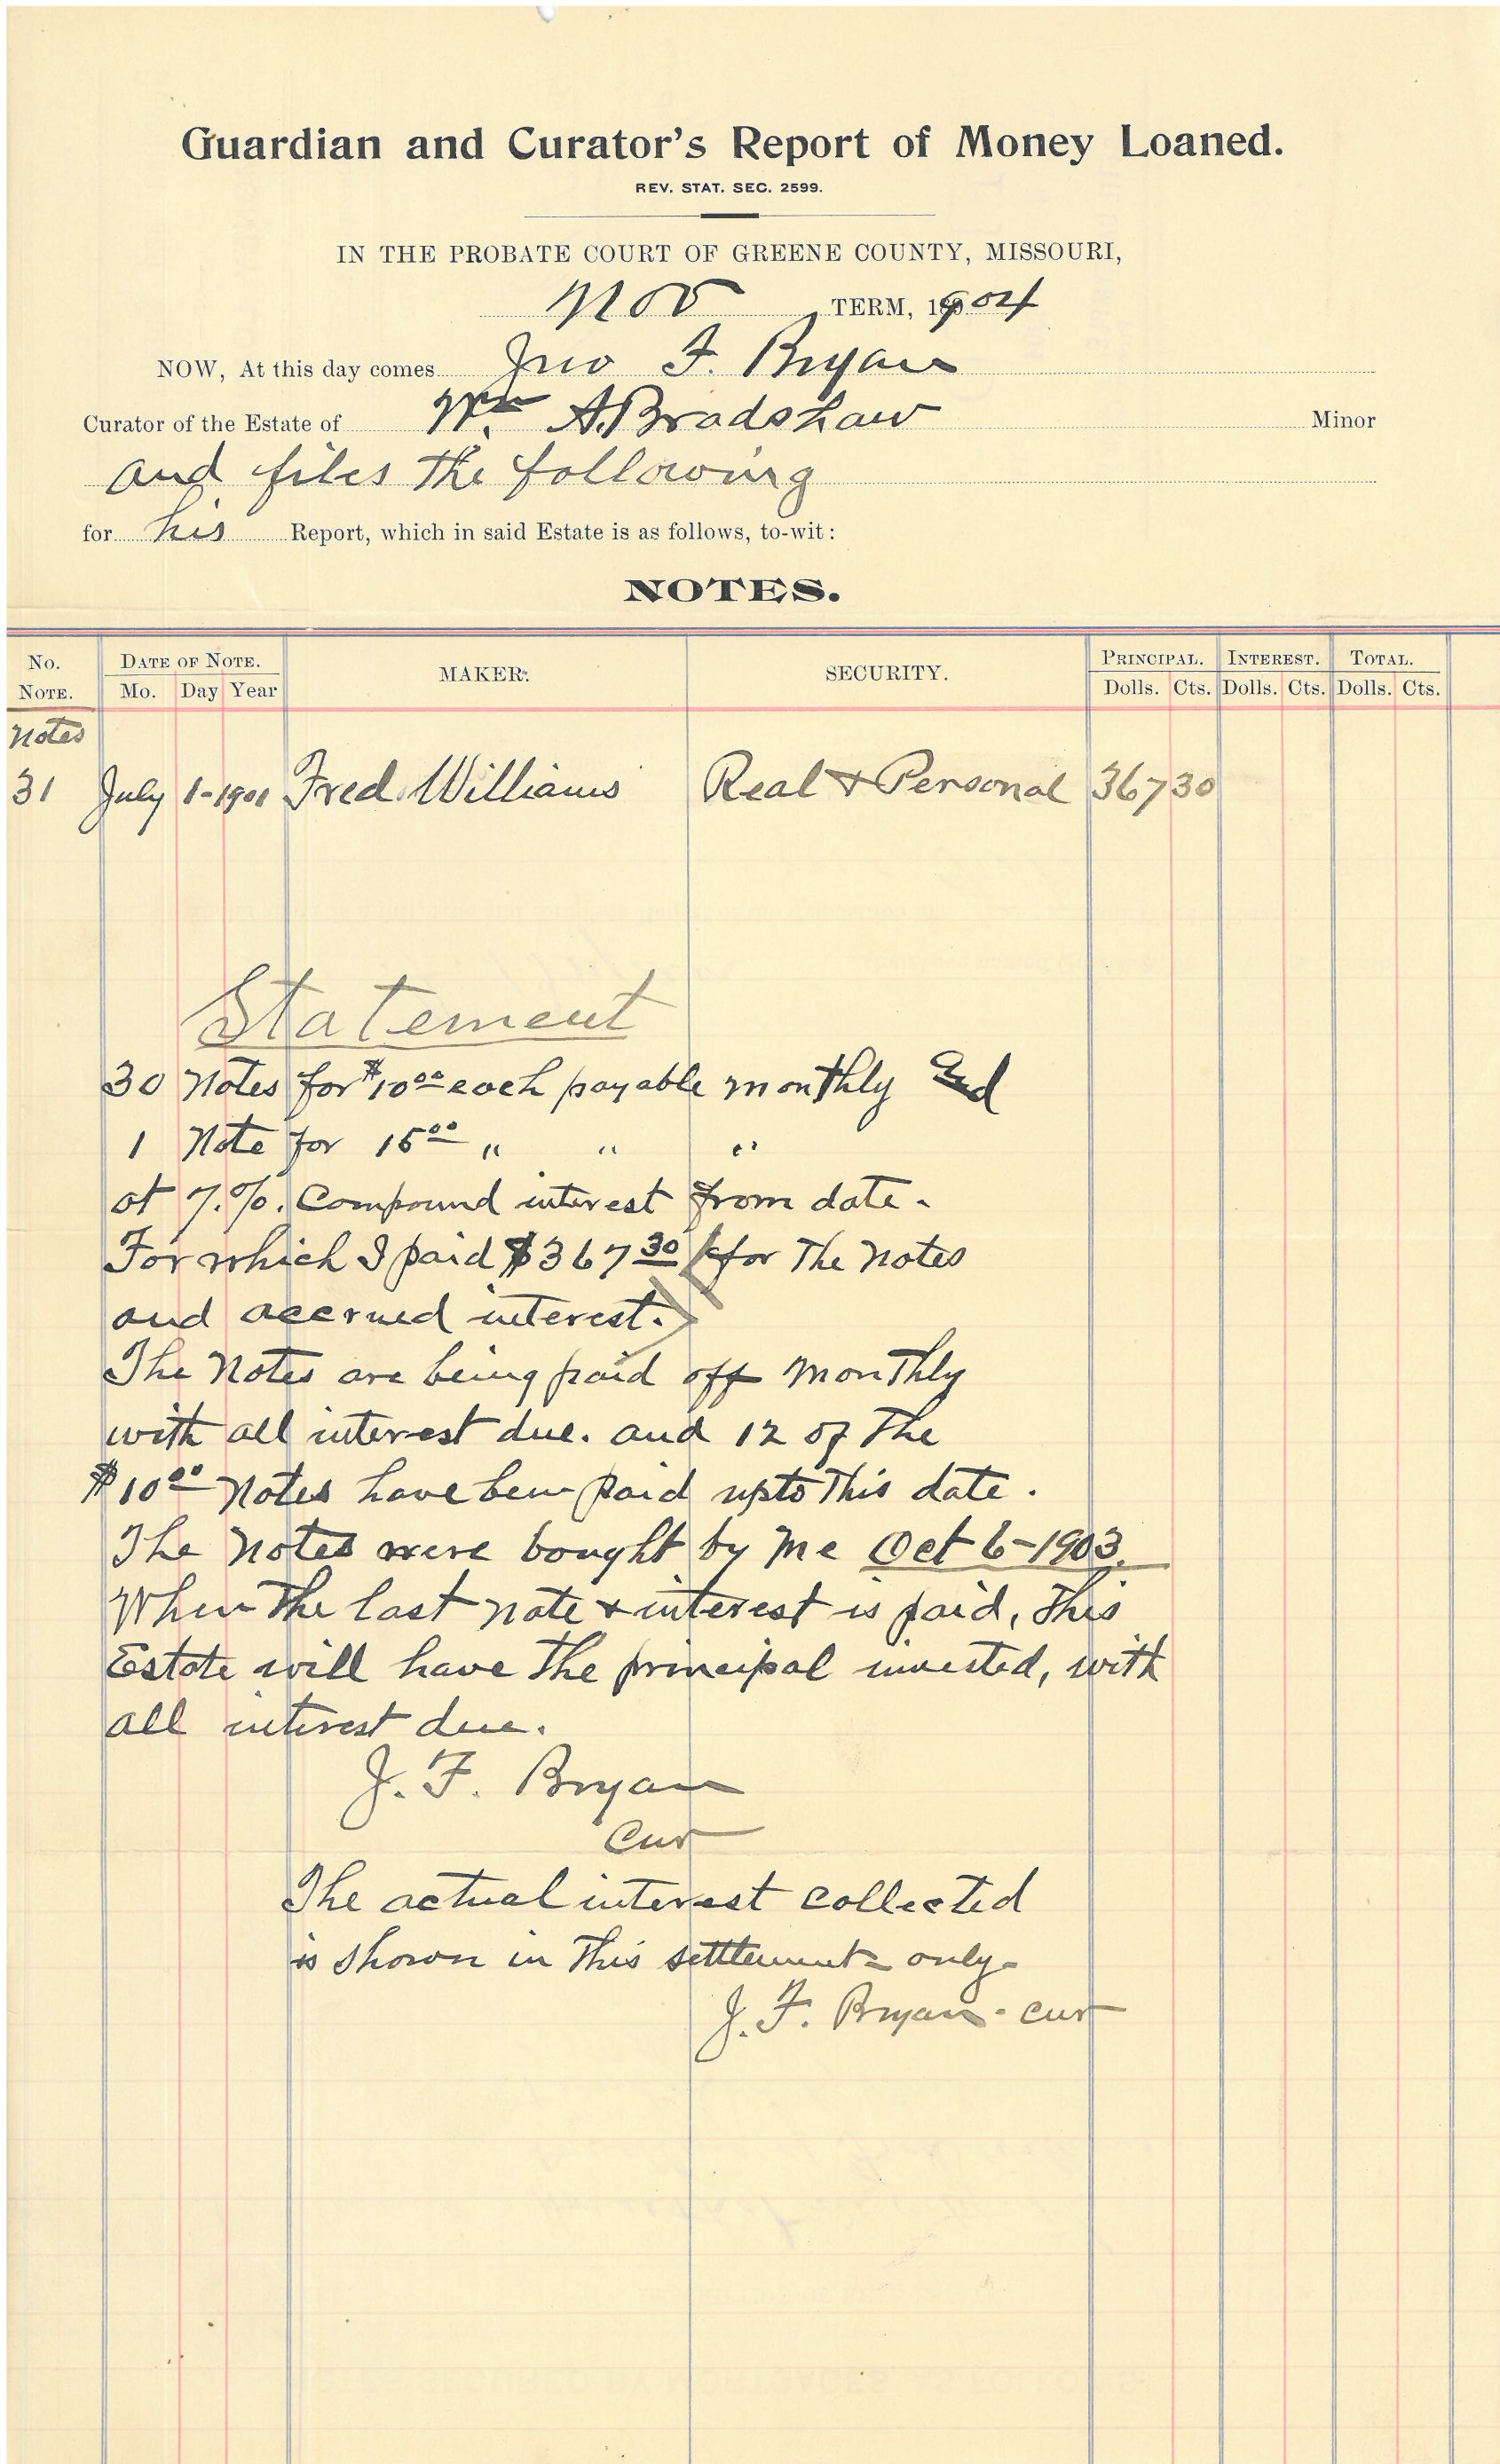 Guardian and Curator's Report of Money Loaned.
REV. STAT. SEC. 2599.
IN THE PROBATE COURT OF GREENE COUNTY, MISSOURI,
Nov TERM, 1904
NOW, At this day comes Jno F. Bryan
Curator of the Estate of Wm A. Bradshaw Minor
and files the following
for his Report, which in said Estate is as follows, to-wit:
NOTES.
No. NOTE. DATE OF NOTE. Mo. Day Year MAKER. SECURITY. PRINCIPAL. Dolls. Cts. INTEREST. Dolls. Cts. TOTAL. Dolls. Cts.
Notes
31 July 1-1901 Fred Williams Real & Personal 367 30
Statement
30 Notes for $10 00 each payable monthly
1 Note for 15 00 " " "
at 7.%. Compound interest from date.
For which I paid $367 30 for the notes
and accrued interest.
The Notes are being paid off monthly
with all interest due. and 12 of the
$10 00 Notes have been paid upto this date.
The Notes were bought by me Oct 6-1903.
When the last note & interest is paid, this
Estate will have the principal invested, with
all interest due.
J. F. Bryan
Cur
The actual interest collected
is shown in this settlement only-
J. F. Bryan - Cur